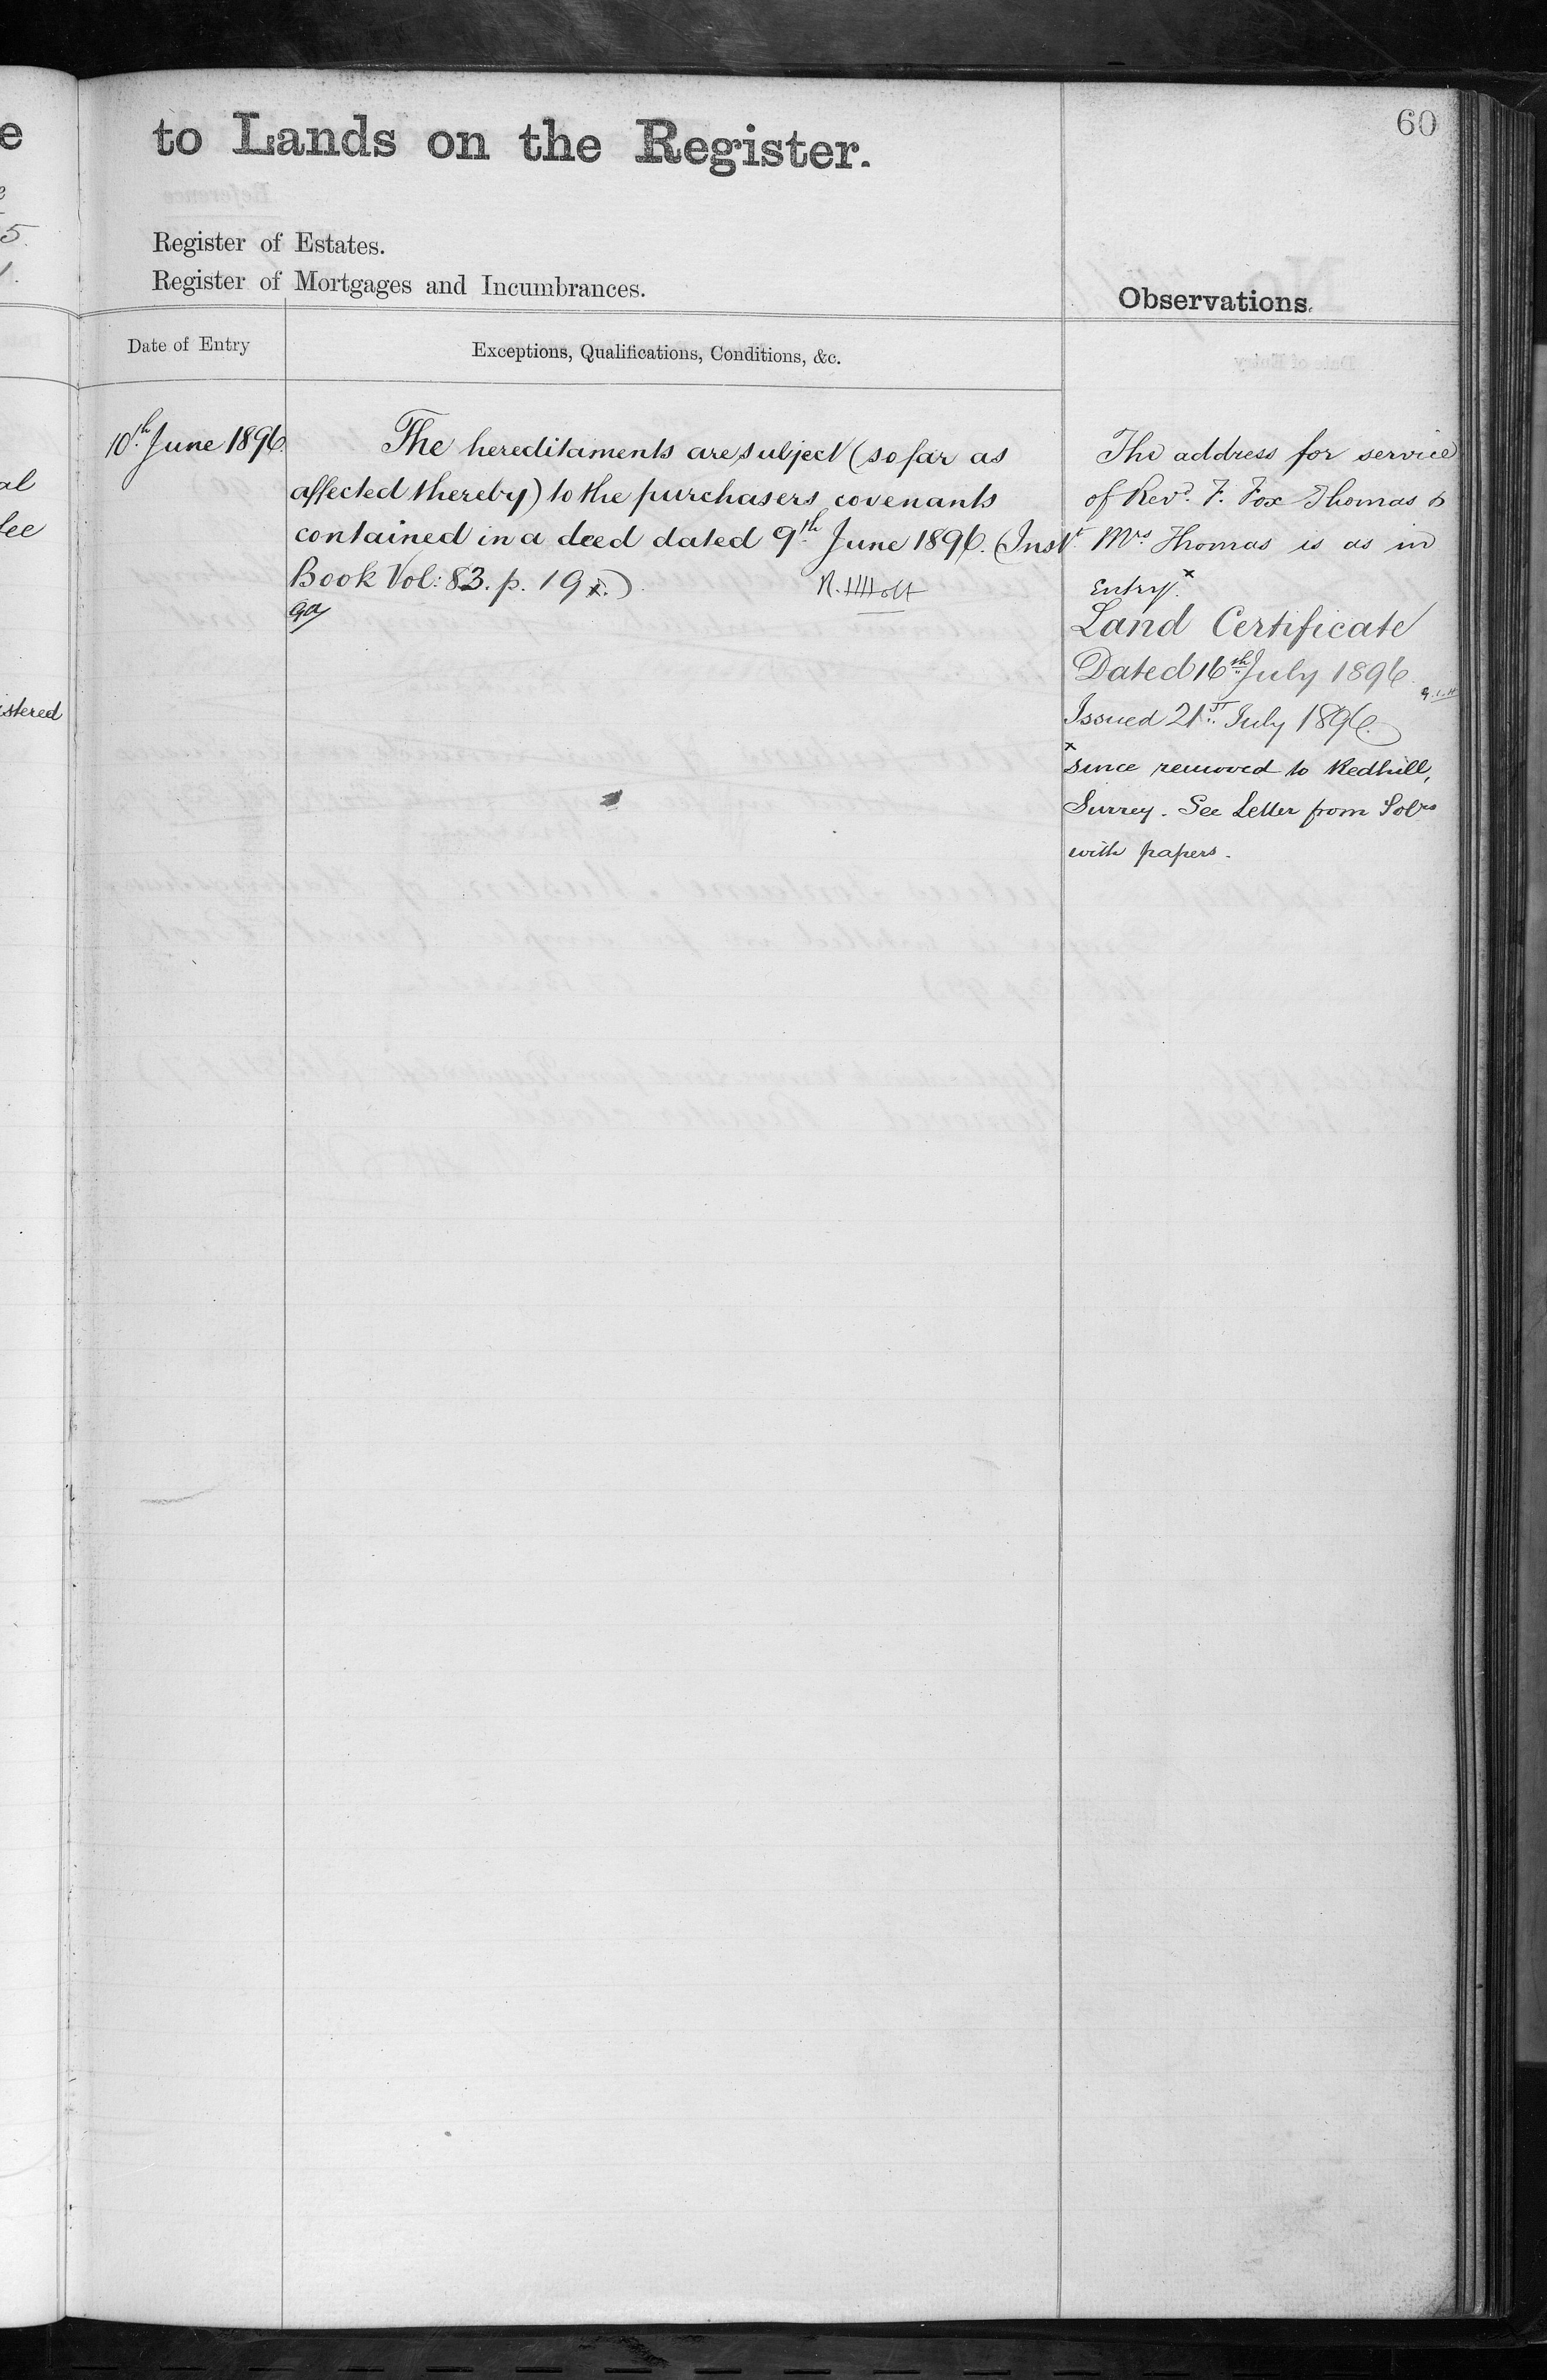 60
to Lands on the Register.
Register of Estates.
Register of Mortgages and Incumbrances.
Observations.
Date of Entry
Exceptions, Qualifications, Conditions, &c.
10th June 1896.
The hereditaments are subject (so far as
affected thereby) to the purchasers covenants
contained in a deed dated 9th June 1896. (Instt
Book Vol: 83. p. 19
The address for service
of Revd. F. Fox Thomas &
Mrs Thomas is as in
Entry. x
Land Certificate
Dated 16th July 1896
Issued 21st July 1896.
x since removed to Redhill,
Surrey. See Letter from Solrs
with papers.
e
5.
1.
al
fee
istered